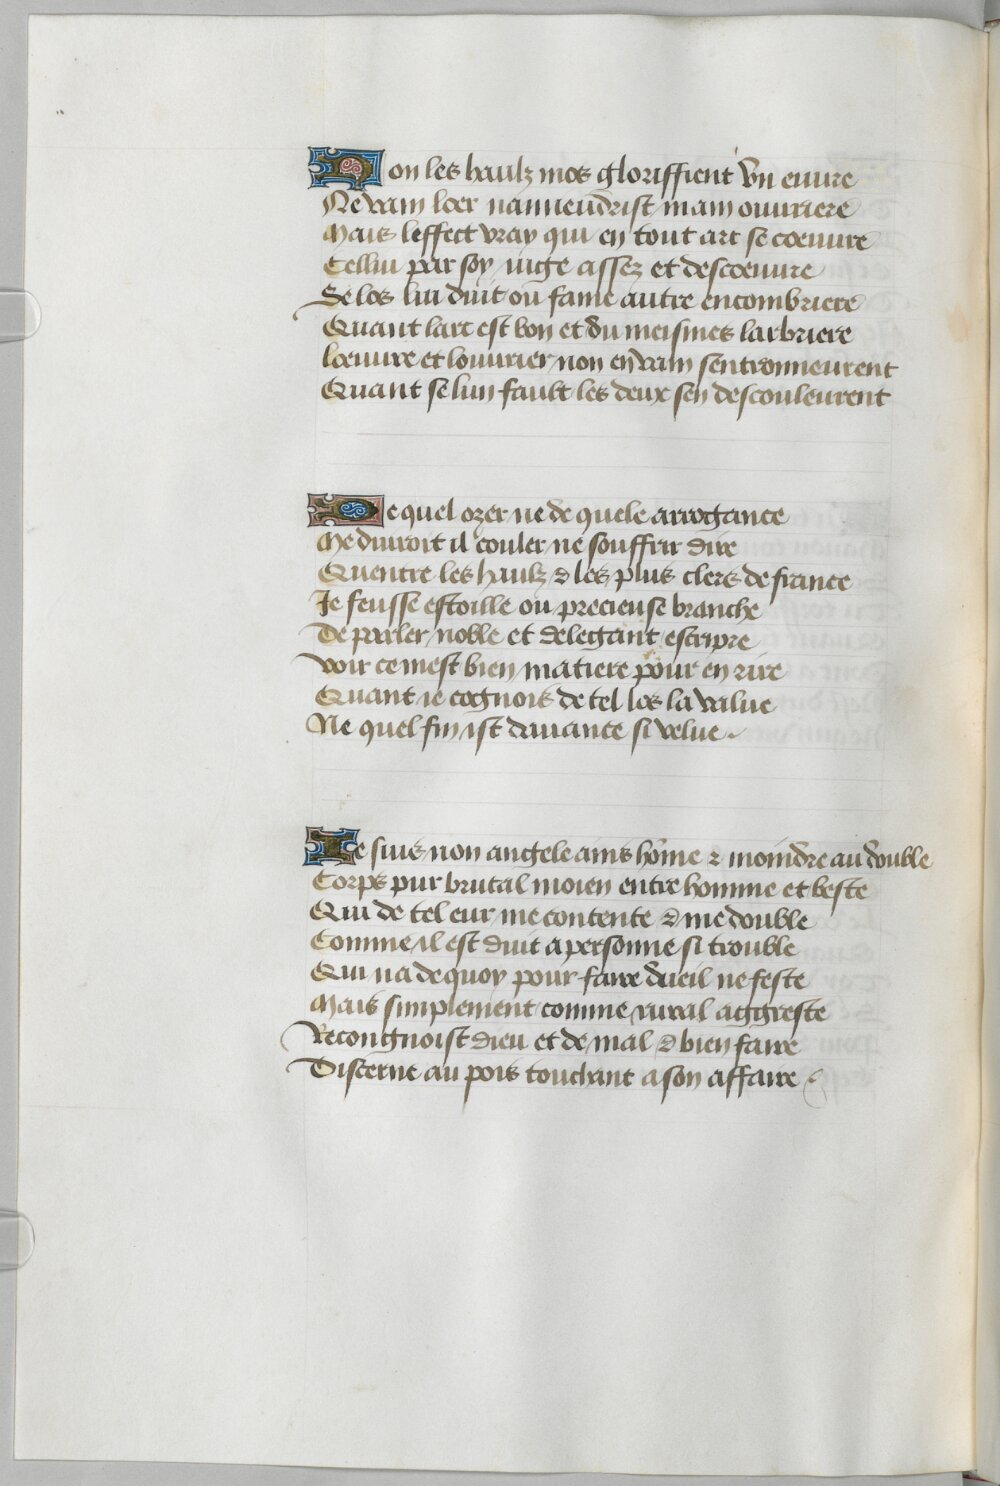 Non les haulz mos gloriffient vn euure
Ne vain loer namendrist main ouuriere
Mais leffect vray qui en tout art se coeuure
Cellui par soy iuge assez et descoeuure
Se los lui duit ou fame autre encombriere
Quant lart est bon et du meismes larbriere
loeuure et louurier non en vain sentronneurent
Quant se lun fault les deux sen descouleurent
De quel ozer ne de quele arrogance
Me duiroit il couler ne souffrir dire
Quentre les haulz & les plus clers de france
Je feusse estoille ou precieuse branche
De parler noble et delegant escripre
voir ce mest bien matiere pour en rire
Quant ie cognois de tel los la value
Ne quel fin ist dauance si velue.
Je suis non angele ains hôme & moindre au double
Corps pur brutal moien entre homme et beste
Qui de tel eur me contente & me double
Comme il est duit a personne si trouble
Qui na de quoy pour faire dueil ne feste
Mais simplement comme rural aggreste
Recongnoist dieu et de mal & bien faire
Discerne au pois touchant a son affaire